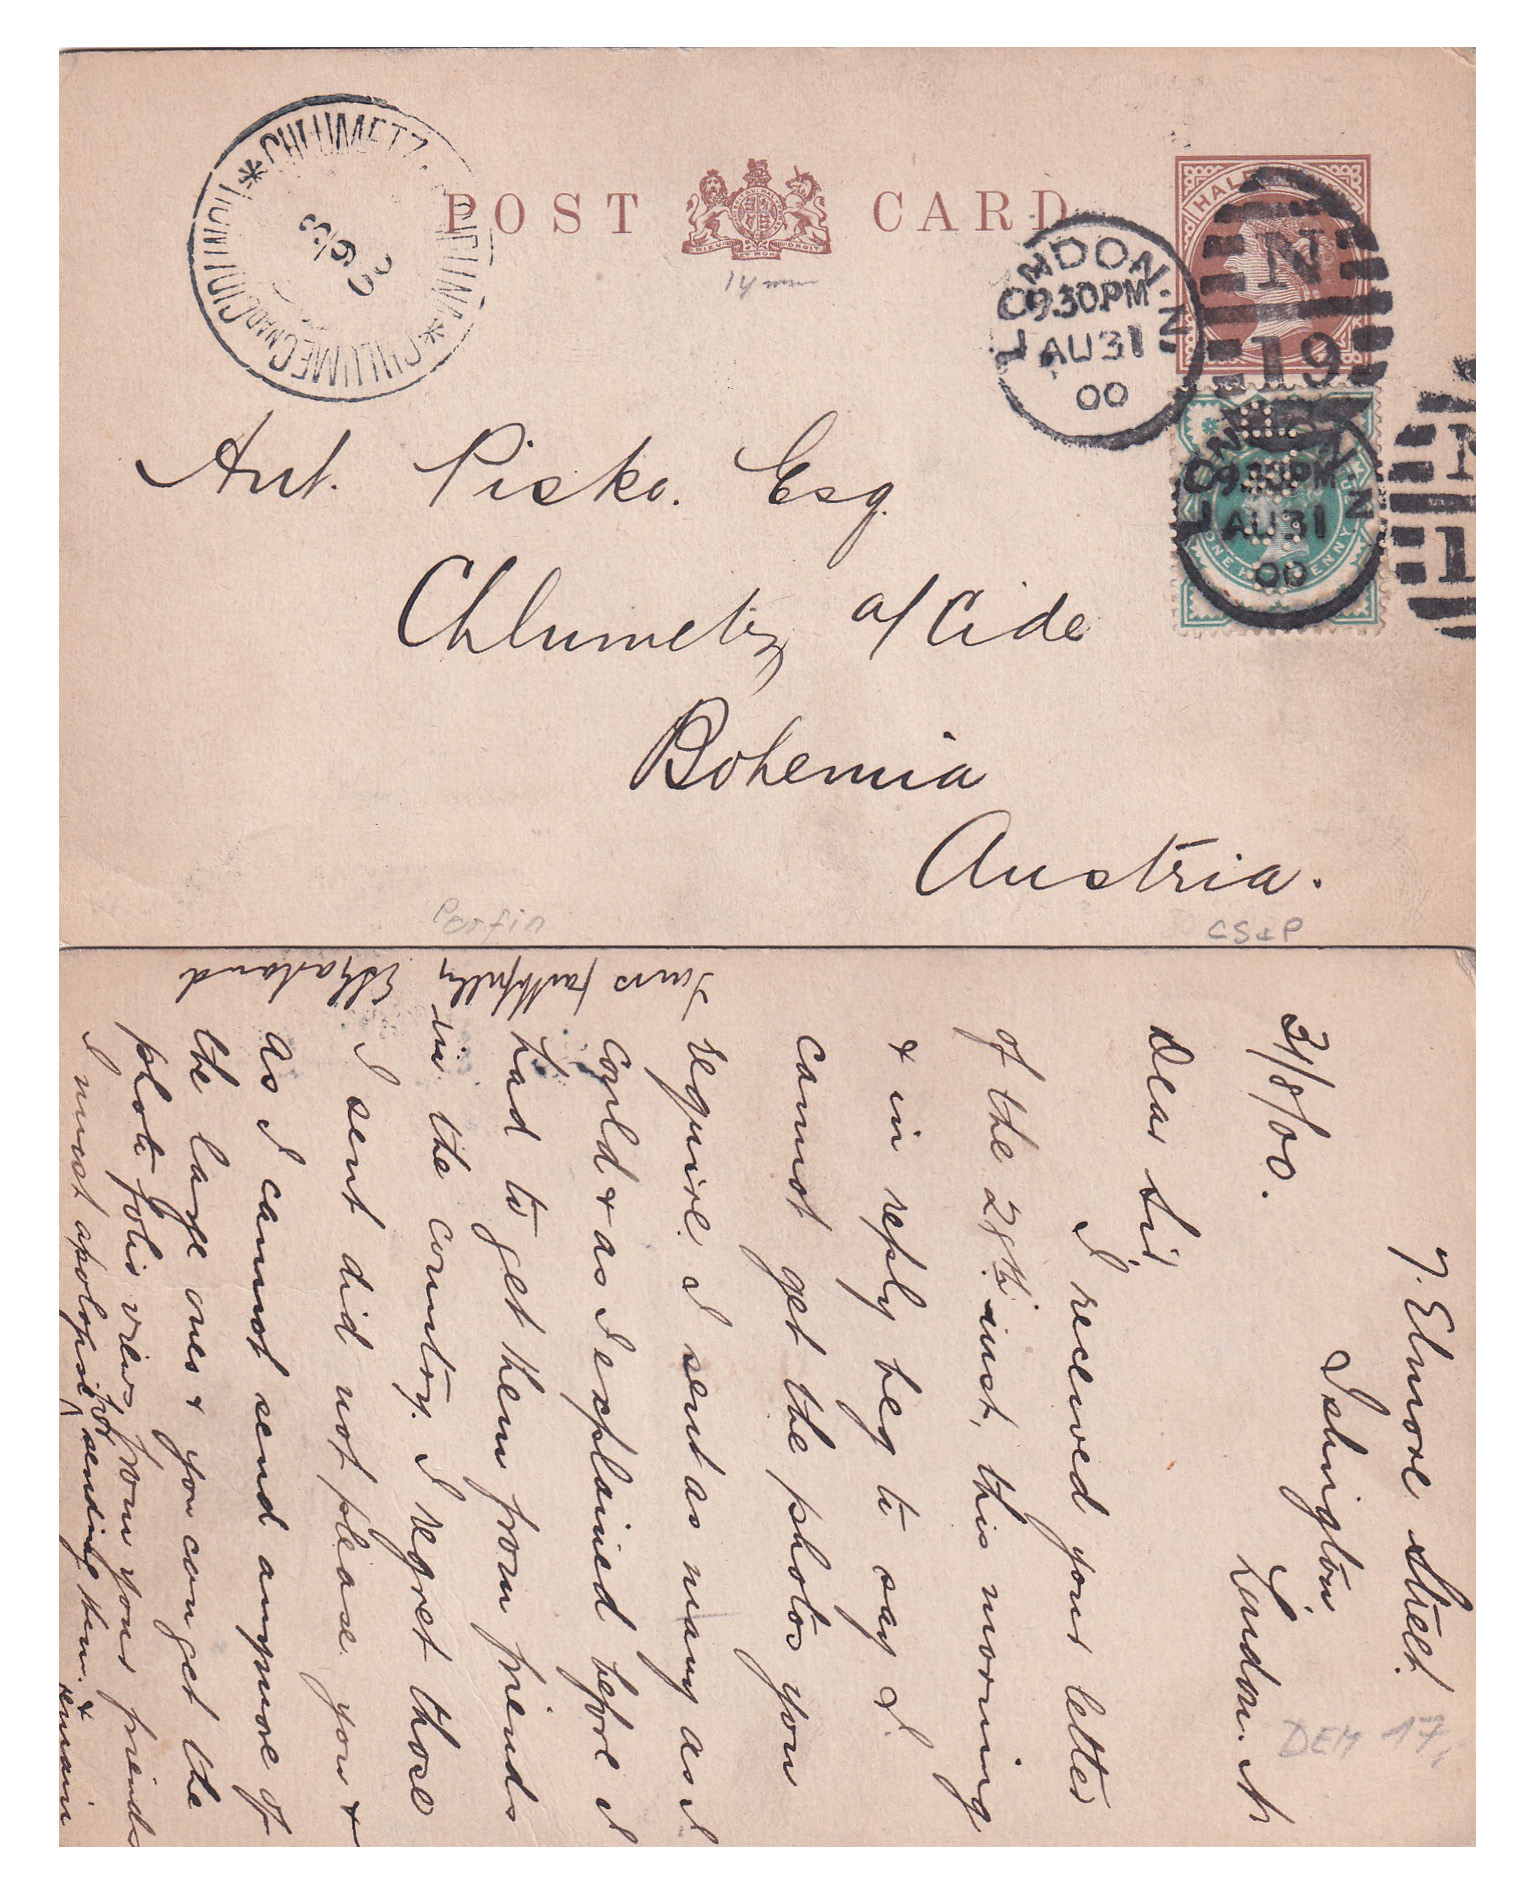 POST CARD
HALF
DIEU ET MON DROIT
14 mm
* CHLUMETZ * CHLUMEC NAD CIDLINOU
3 9
LONDON. N.
9.30PM
AU31
00
N
19
LONDON N
9.30PM
AU31
00
N
1
ONE PENNY
Ant. Pisko. Esq.
Chlumetz a/Cide
Bohemia
Austria.
Perfin
CS&P
7. Elmore Street.
Islington
London. N
31/8/00.
Dear Sir,
I received your letter
of the 28th inst, this morning
& in reply beg to say I
cannot get the photos you
require. I sent as many as I
could & as I explained before I
had to get them from friends
in the country. I regret those
I sent did not please you &
as I cannot send anymore of
the large ones & you can get the
photo folio views from your friends
I must apologise for sending them. & remain
Yours faithfully
DEM 17,